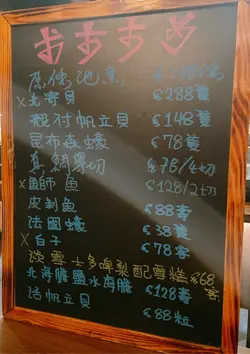 象拔蚌
X 北寄貝 $288隻
殼付帆立貝 $148隻
昆布森蠔 $78隻
真鯛身切 $78/4切
X 鰤魚 $128/2切
皮剝魚 $88客
法國蠔 $38隻
X 白子 $78客
淡雪士多啤梨配雪糕 $68客
北海膽鹽水海膽 $128客
活帆立貝 $88粒